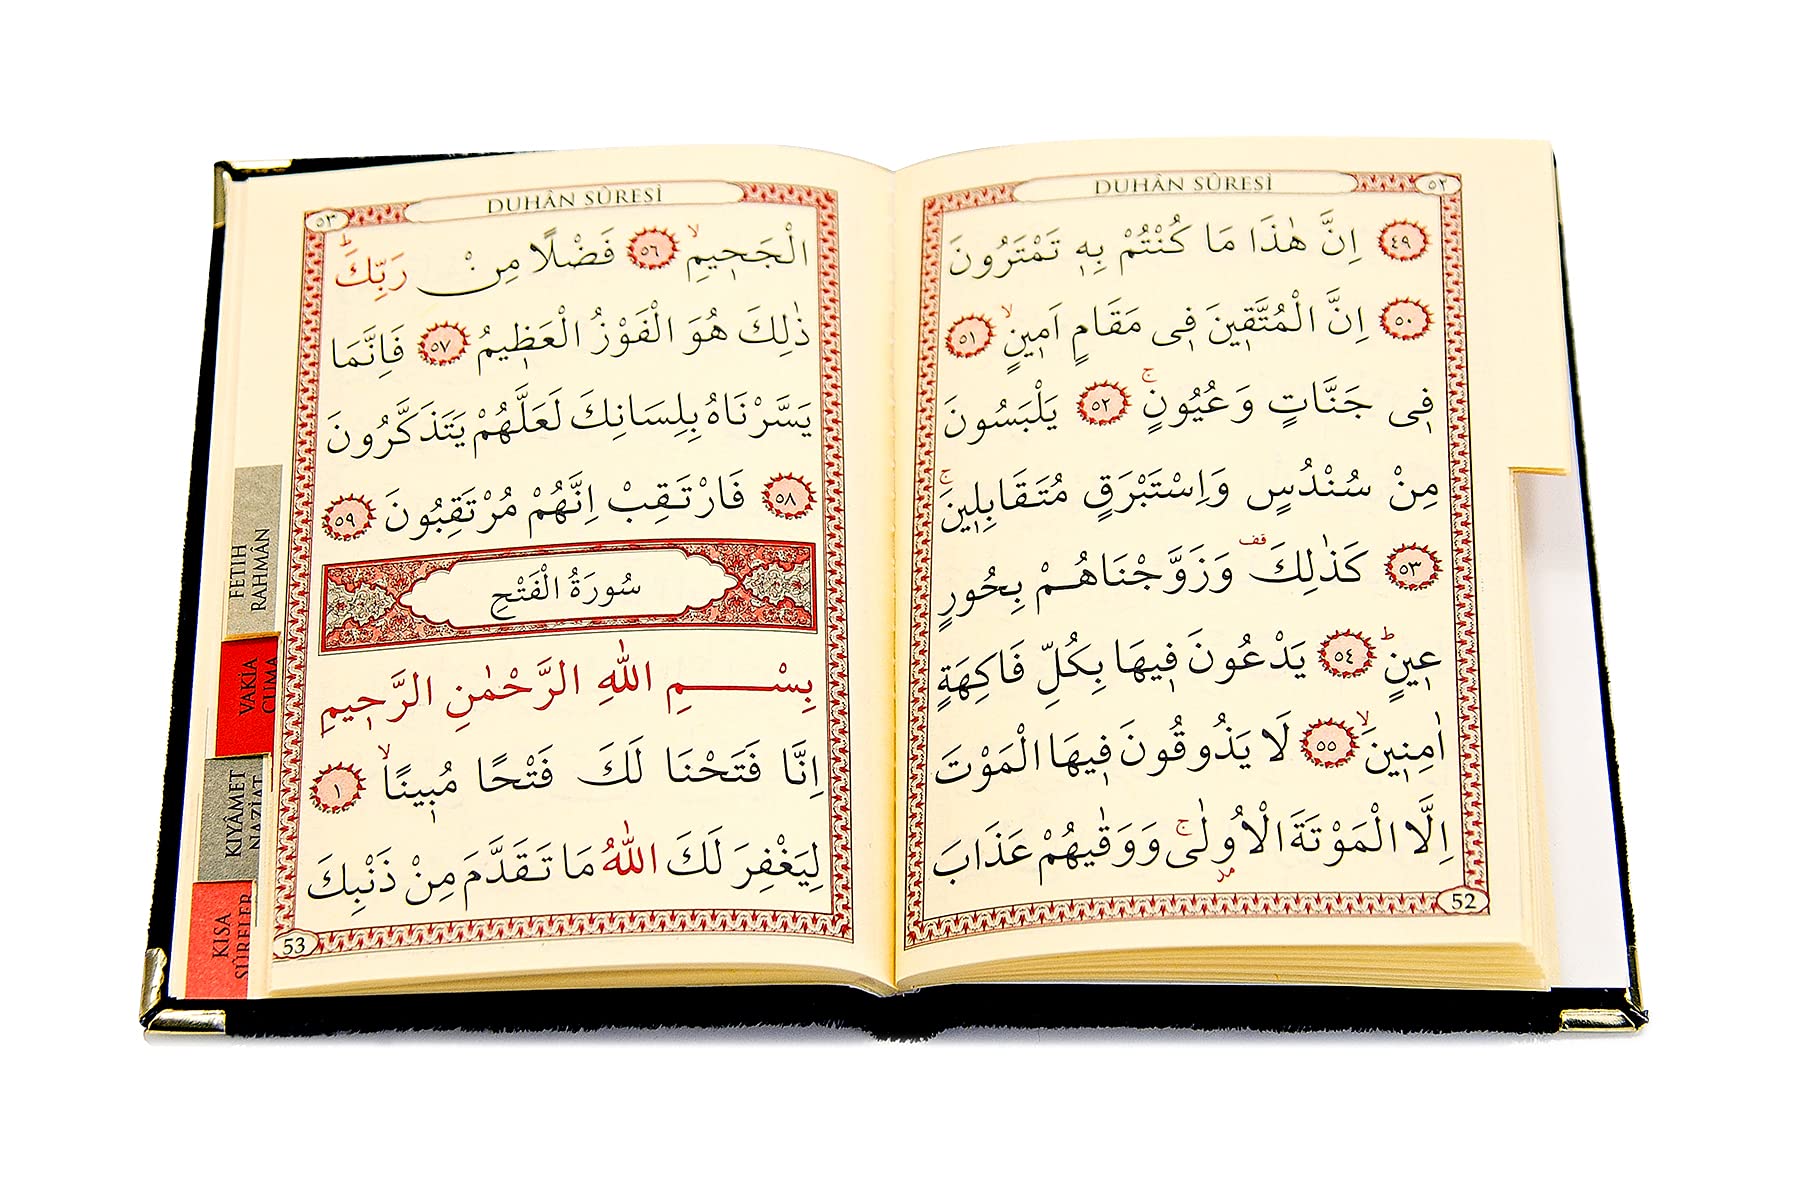 DUHÂN SÛRESİ ٥٢
﴿٤٩﴾ اِنَّ هٰذَا مَا كُنْتُمْ بِهٖ تَمْتَرُونَ
﴿٥٠﴾ اِنَّ الْمُتَّقٖينَ فٖى مَقَامٍ اَمٖينٍۙ ﴿٥١﴾
فٖى جَنَّاتٍ وَعُيُونٍۚ ﴿٥٢﴾ يَلْبَسُونَ
مِنْ سُنْدُسٍ وَاِسْتَبْرَقٍ مُتَقَابِلٖينَۚ
﴿٥٣﴾ كَذٰلِكَ قف وَزَوَّجْنَاهُمْ بِحُورٍ
عٖينٍۜ ﴿٥٤﴾ يَدْعُونَ فٖيهَا بِكُلِّ فَاكِهَةٍ
اٰمِنٖينَۙ ﴿٥٥﴾ لَا يَذُوقُونَ فٖيهَا الْمَوْتَ
اِلَّا الْمَوْتَةَ الْاُولٰىۚ وَوَقٰيهُمْ عَذَابَ
مد
52
٥٣ DUHÂN SÛRESİ
الْجَحٖيمِۙ ﴿٥٦﴾ فَضْلًا مِنْ رَبِّكَۜ
ذٰلِكَ هُوَ الْفَوْزُ الْعَظٖيمُ ﴿٥٧﴾ فَاِنَّمَا
يَسَّرْنَاهُ بِلِسَانِكَ لَعَلَّهُمْ يَتَذَكَّرُونَ
﴿٥٨﴾ فَارْتَقِبْ اِنَّهُمْ مُرْتَقِبُونَ ﴿٥٩﴾
سُورَةُ الْفَتْحِ
بِسْمِ اللّٰهِ الرَّحْمٰنِ الرَّحٖيمِ
اِنَّا فَتَحْنَا لَكَ فَتْحًا مُبٖينًاۙ ﴿١﴾
لِيَغْفِرَ لَكَ اللّٰهُ مَا تَقَدَّمَ مِنْ ذَنْبِكَ
53
FETİH
RAHMÂN
VAKIA
CUMA
KIYÂMET
NAZİAT
KISA
SÛRELER